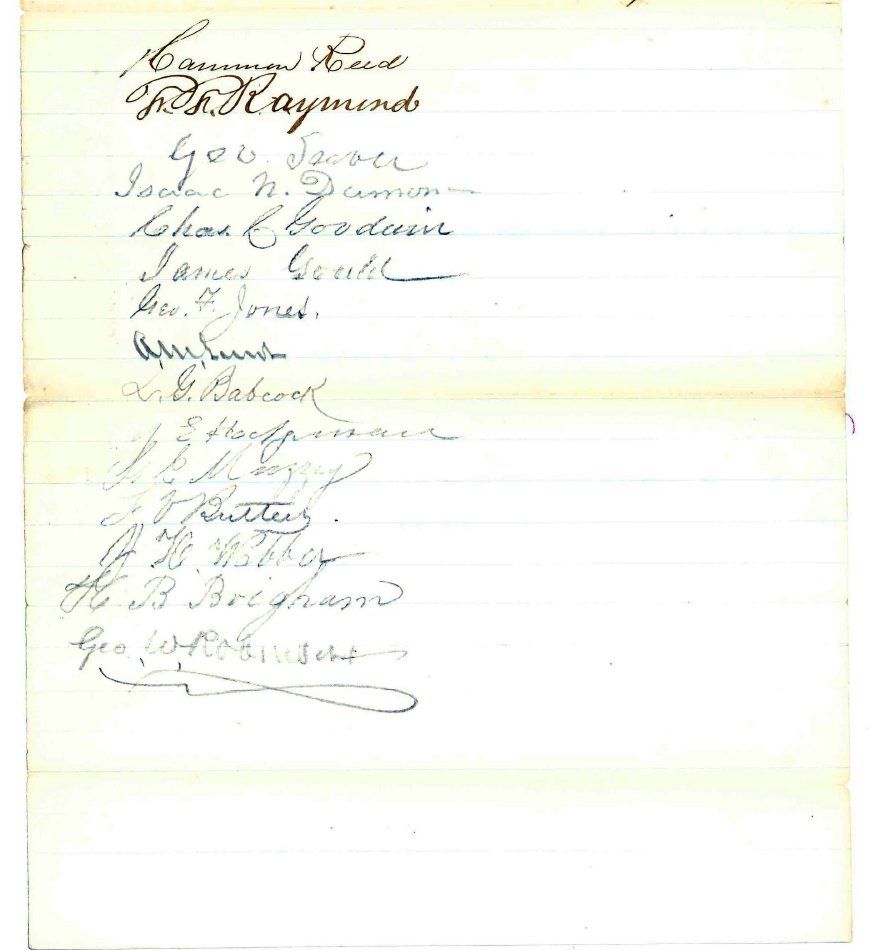 Hammon Reed
F. F. Raymond
Geo. Seaver
Isaac N. Damon
Chas. C Goodwin
James Gould
Geo. F. Jones.
A. M. Lunt
L. G. Babcock
E Hodgman
E Muzzey
F V Butters.
J H. Webber
H B Brigham
Geo. W. Robinson